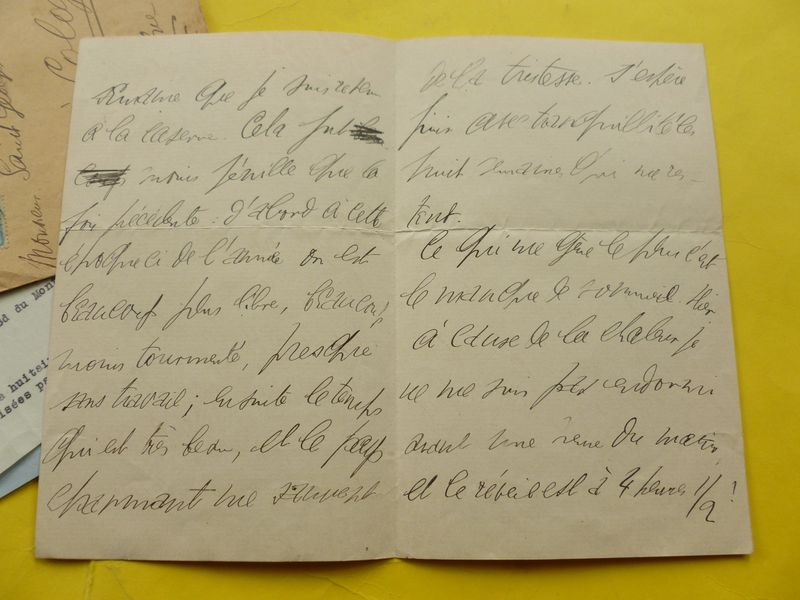 que je suis revenu
à la caserne. Cela fut
moins pénible que la
fois précédente : D'abord à cette
époque ci de l'année on est
beaucoup plus libre, beaucoup
moins tourmenté, presque
sans travail ; ensuite le temps
qui est très beau, et le pays
charmant me sauvent
de la tristesse. J'espère
finir avec tranquillité les
huit semaines qui me res-
tent.
Ce qui me gêne le plus c'est
le manque de sommeil. Hier
à cause de la chaleur je
ne me suis pas endormi
avant une heure du matin
et le réveil est à 4 heures 1/2 !
Monsieur
Saint
od du Mon
huitai
isées pa